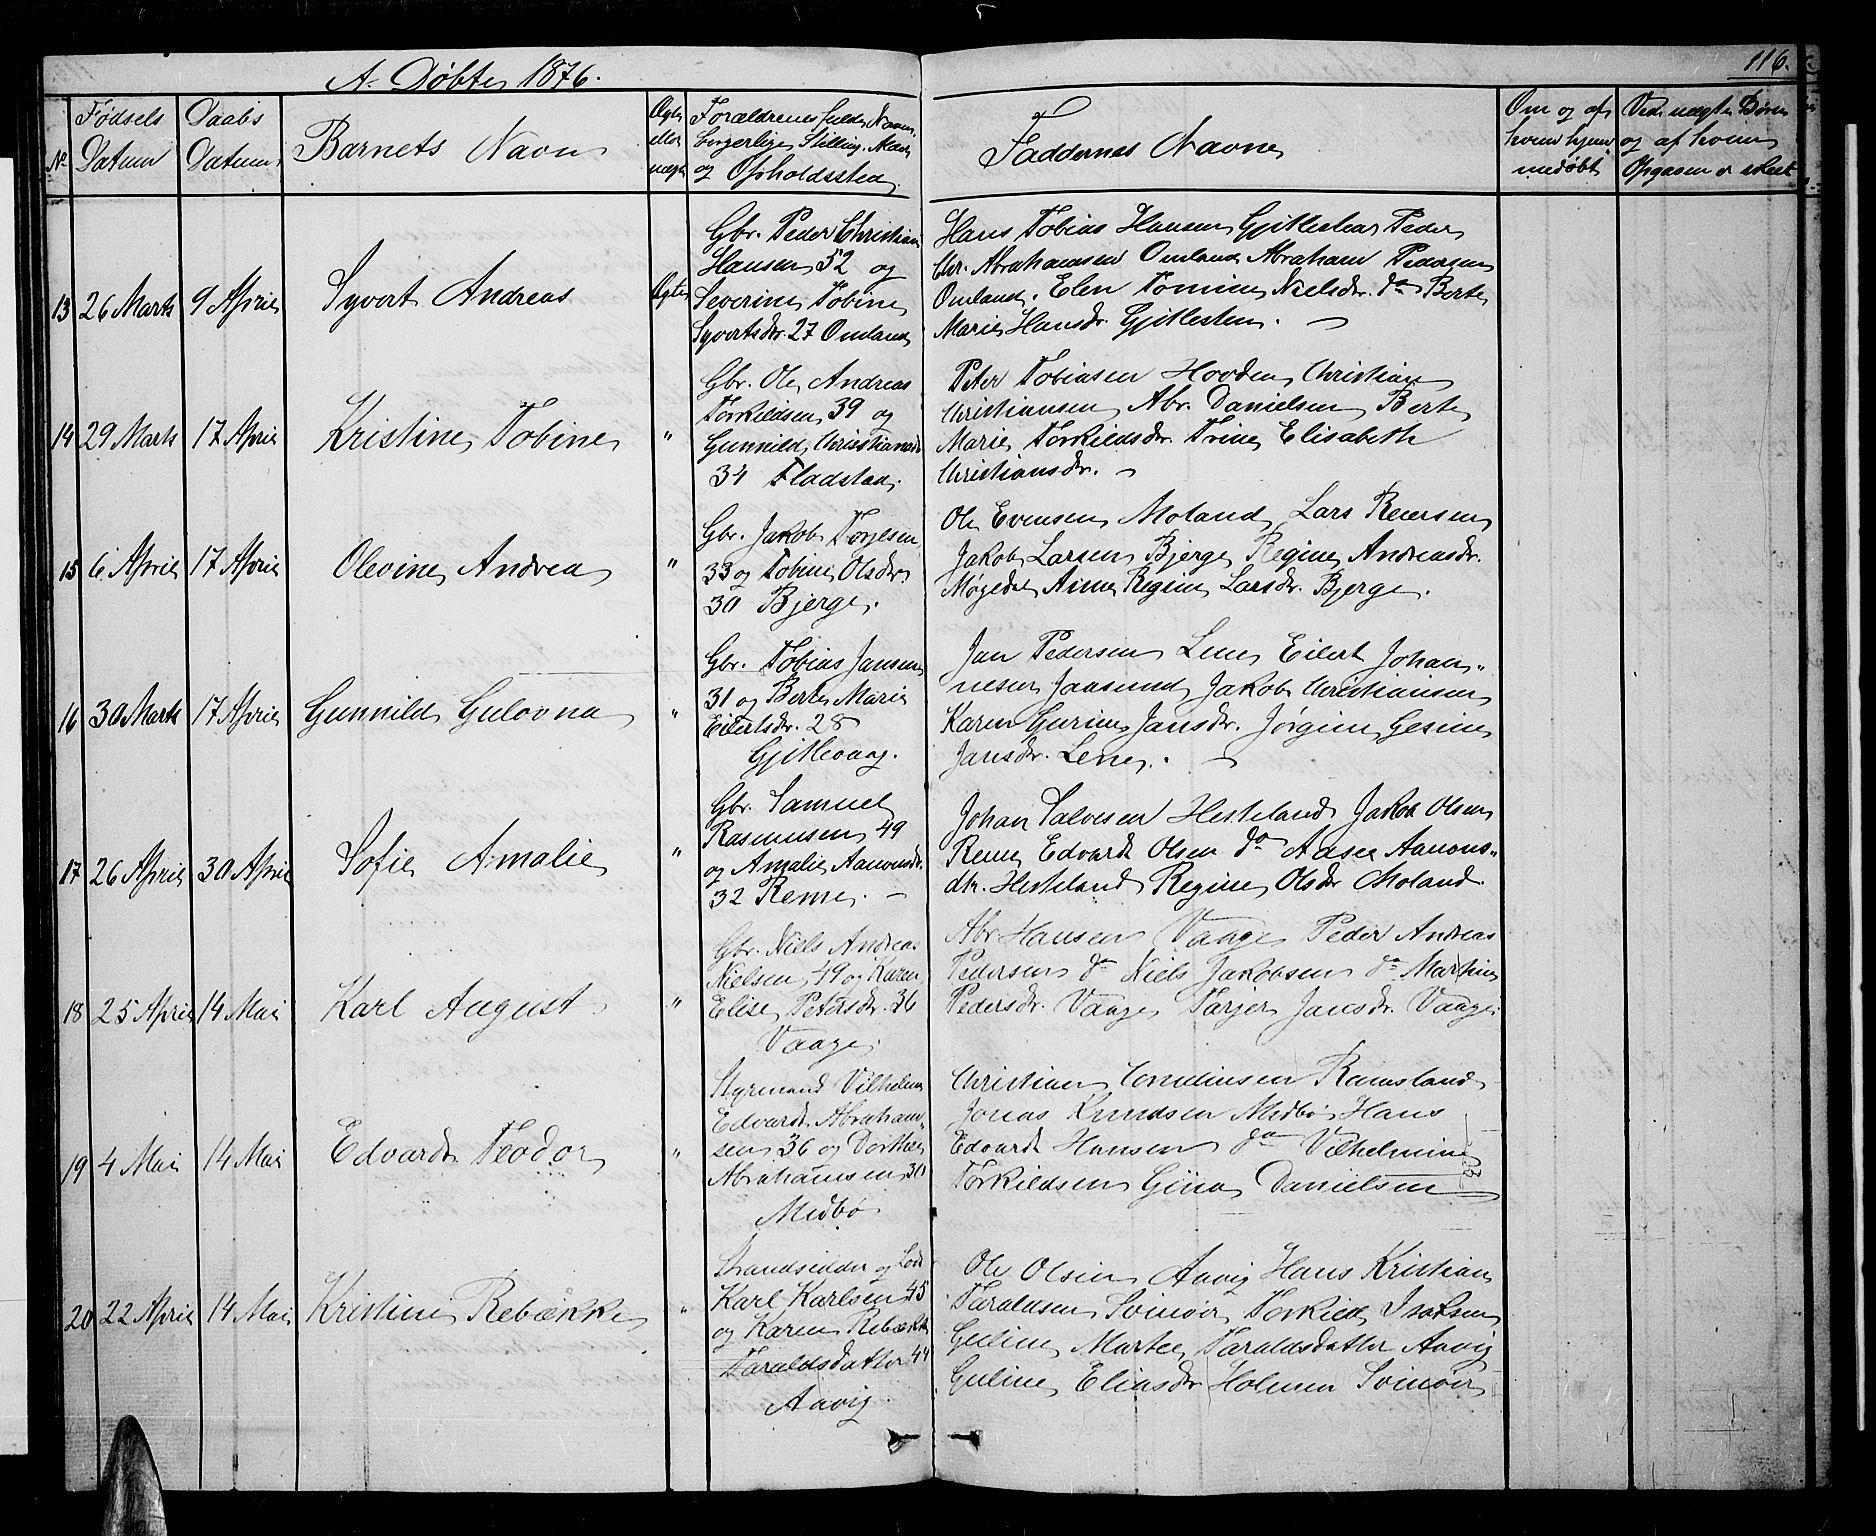 116.
A. Døbte 1876.
No
Fødsels Datum
Daabs Datum
Barnets Navn
Ægte eller uægte
Forældrenes fulde Navn,
borgerlige Stilling, Alder
og Opholdssted.
Faddernes Navne
Om og af hvem hjemmedøbt
Ved uægte Børn
og af hvem
Opgaven er skeet
13 26 Marts 9 April Syvert Andreas Ægte
Gbr. Peder Christian
Hansen 52 og
Severine Tobine
Syvertsdr. 27 Omland
Hans Tobias Hansen Gjitlestad Peder
Chr. Abrahamsen Omland Abraham Pedersen
Omland. Elen Tomine Nielsdr. do Berte
Marie Hansdr. Gjitlesten. —
14 29 Marts 17 April Kristine Tobine "
Gbr. Ole Andreas
Torkildsen 39 og
Gunnild Christiansdr
34 Fladstad.
Peter Tobiasen Hovden Christian
Christiansen Abr. Danielsen Berte
Marie Torkildsdr. Trine Elisabeth
Christiansdr. —
15 6 April 17 April Olevine Andrea "
Gbr. Jakob Torjesen
33 og Tobine Olsdr
30 Bjerge.
Ole Evensen Moland Lars Reiersen
Jakob Larsen Bjerge Regine Andreasdr.
Møgedal Anne Regine Larsdr. Bjerge.
16 30 Marts 17 April Gunnild Gulovna "
Gbr. Tobias Jansen
31 og Berte Marie
Eilertsdr. 28
Gjitlevaag.
Jan Pedersen Lene Eilert Johan-
nesen Jaasund Jakob Christiansen
Karen Gurine Jansdr. Jørgine Gesine
Jansdr. Lene. —
17 26 April 30 April Sofie Amalie "
Gbr. Samuel
Rasmusen 49
og Amalie Aanonsdr.
32 Reme. —
Johan Salvesen Hesteland Jakob Olsen
Reme Edvardt Olsen do Adsee Aanons-
dtr. Hesteland Regine Olsdr Moland.
18 25 April 14 Mai Karl August "
Gbr. Niels Andreas
Nielsen 49 og Karen
Elise Petersdr. 36
Vaage.
Abr Hansen Vaage Peder Andreas
Pedersen do Niels Jakobsen do Martine
Pedersdr. Vaage Tarjer Jansdr. Vaage.
19 4 Mai 14 Mai Edvardt Teodor "
Styrmand Vilhelm
Edvardt Abraham-
sen 36 og Dorthea
Abrahamsen 30
Midbø
Christian Corneliusen Ramsland
Jonas Knudsen Midbø Hans
Edvardt Hansen do Vilhelmine
Torkildsen Gina Danielsen
20 22 April 14 Mai Kristine Rebække "
Strandsidder og Lods
Karl Karlsen 45
og Karen Rebække
Taraldsdatter 44
Aavig.
Ole Olsen Aavig Hans Kristian
Taraldsen Svinør Torkild Isaksen
Guline Martee Taraldsdatter Aavig
Guline Eliasdr Holmen Svinør